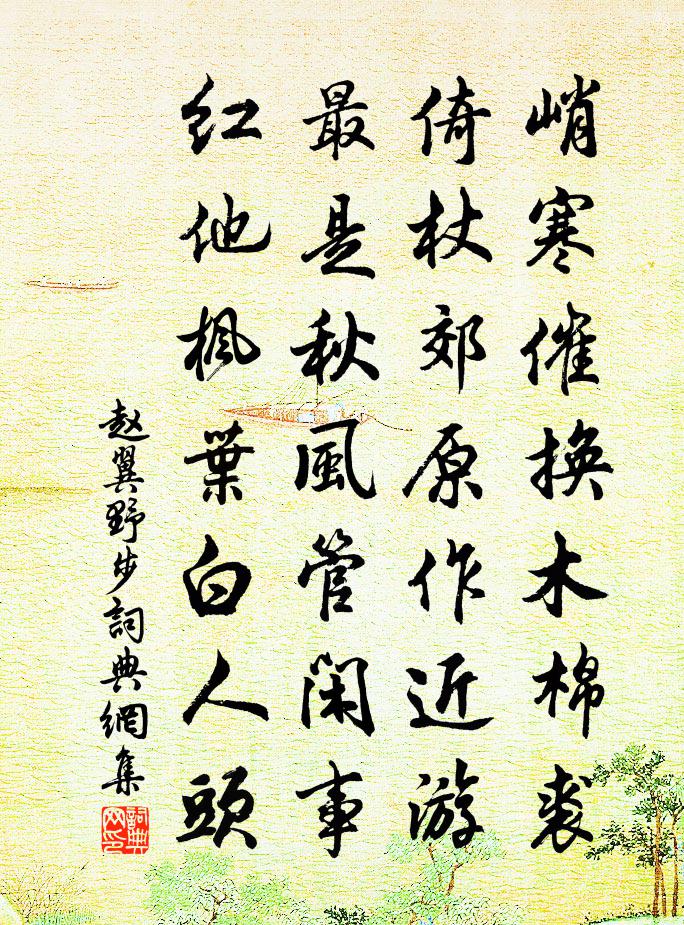 峭寒催換木棉裘
倚杖郊原作近游
最是秋風管閑事
紅他楓葉白人頭
赵翼野步詞典網集
詞典網印